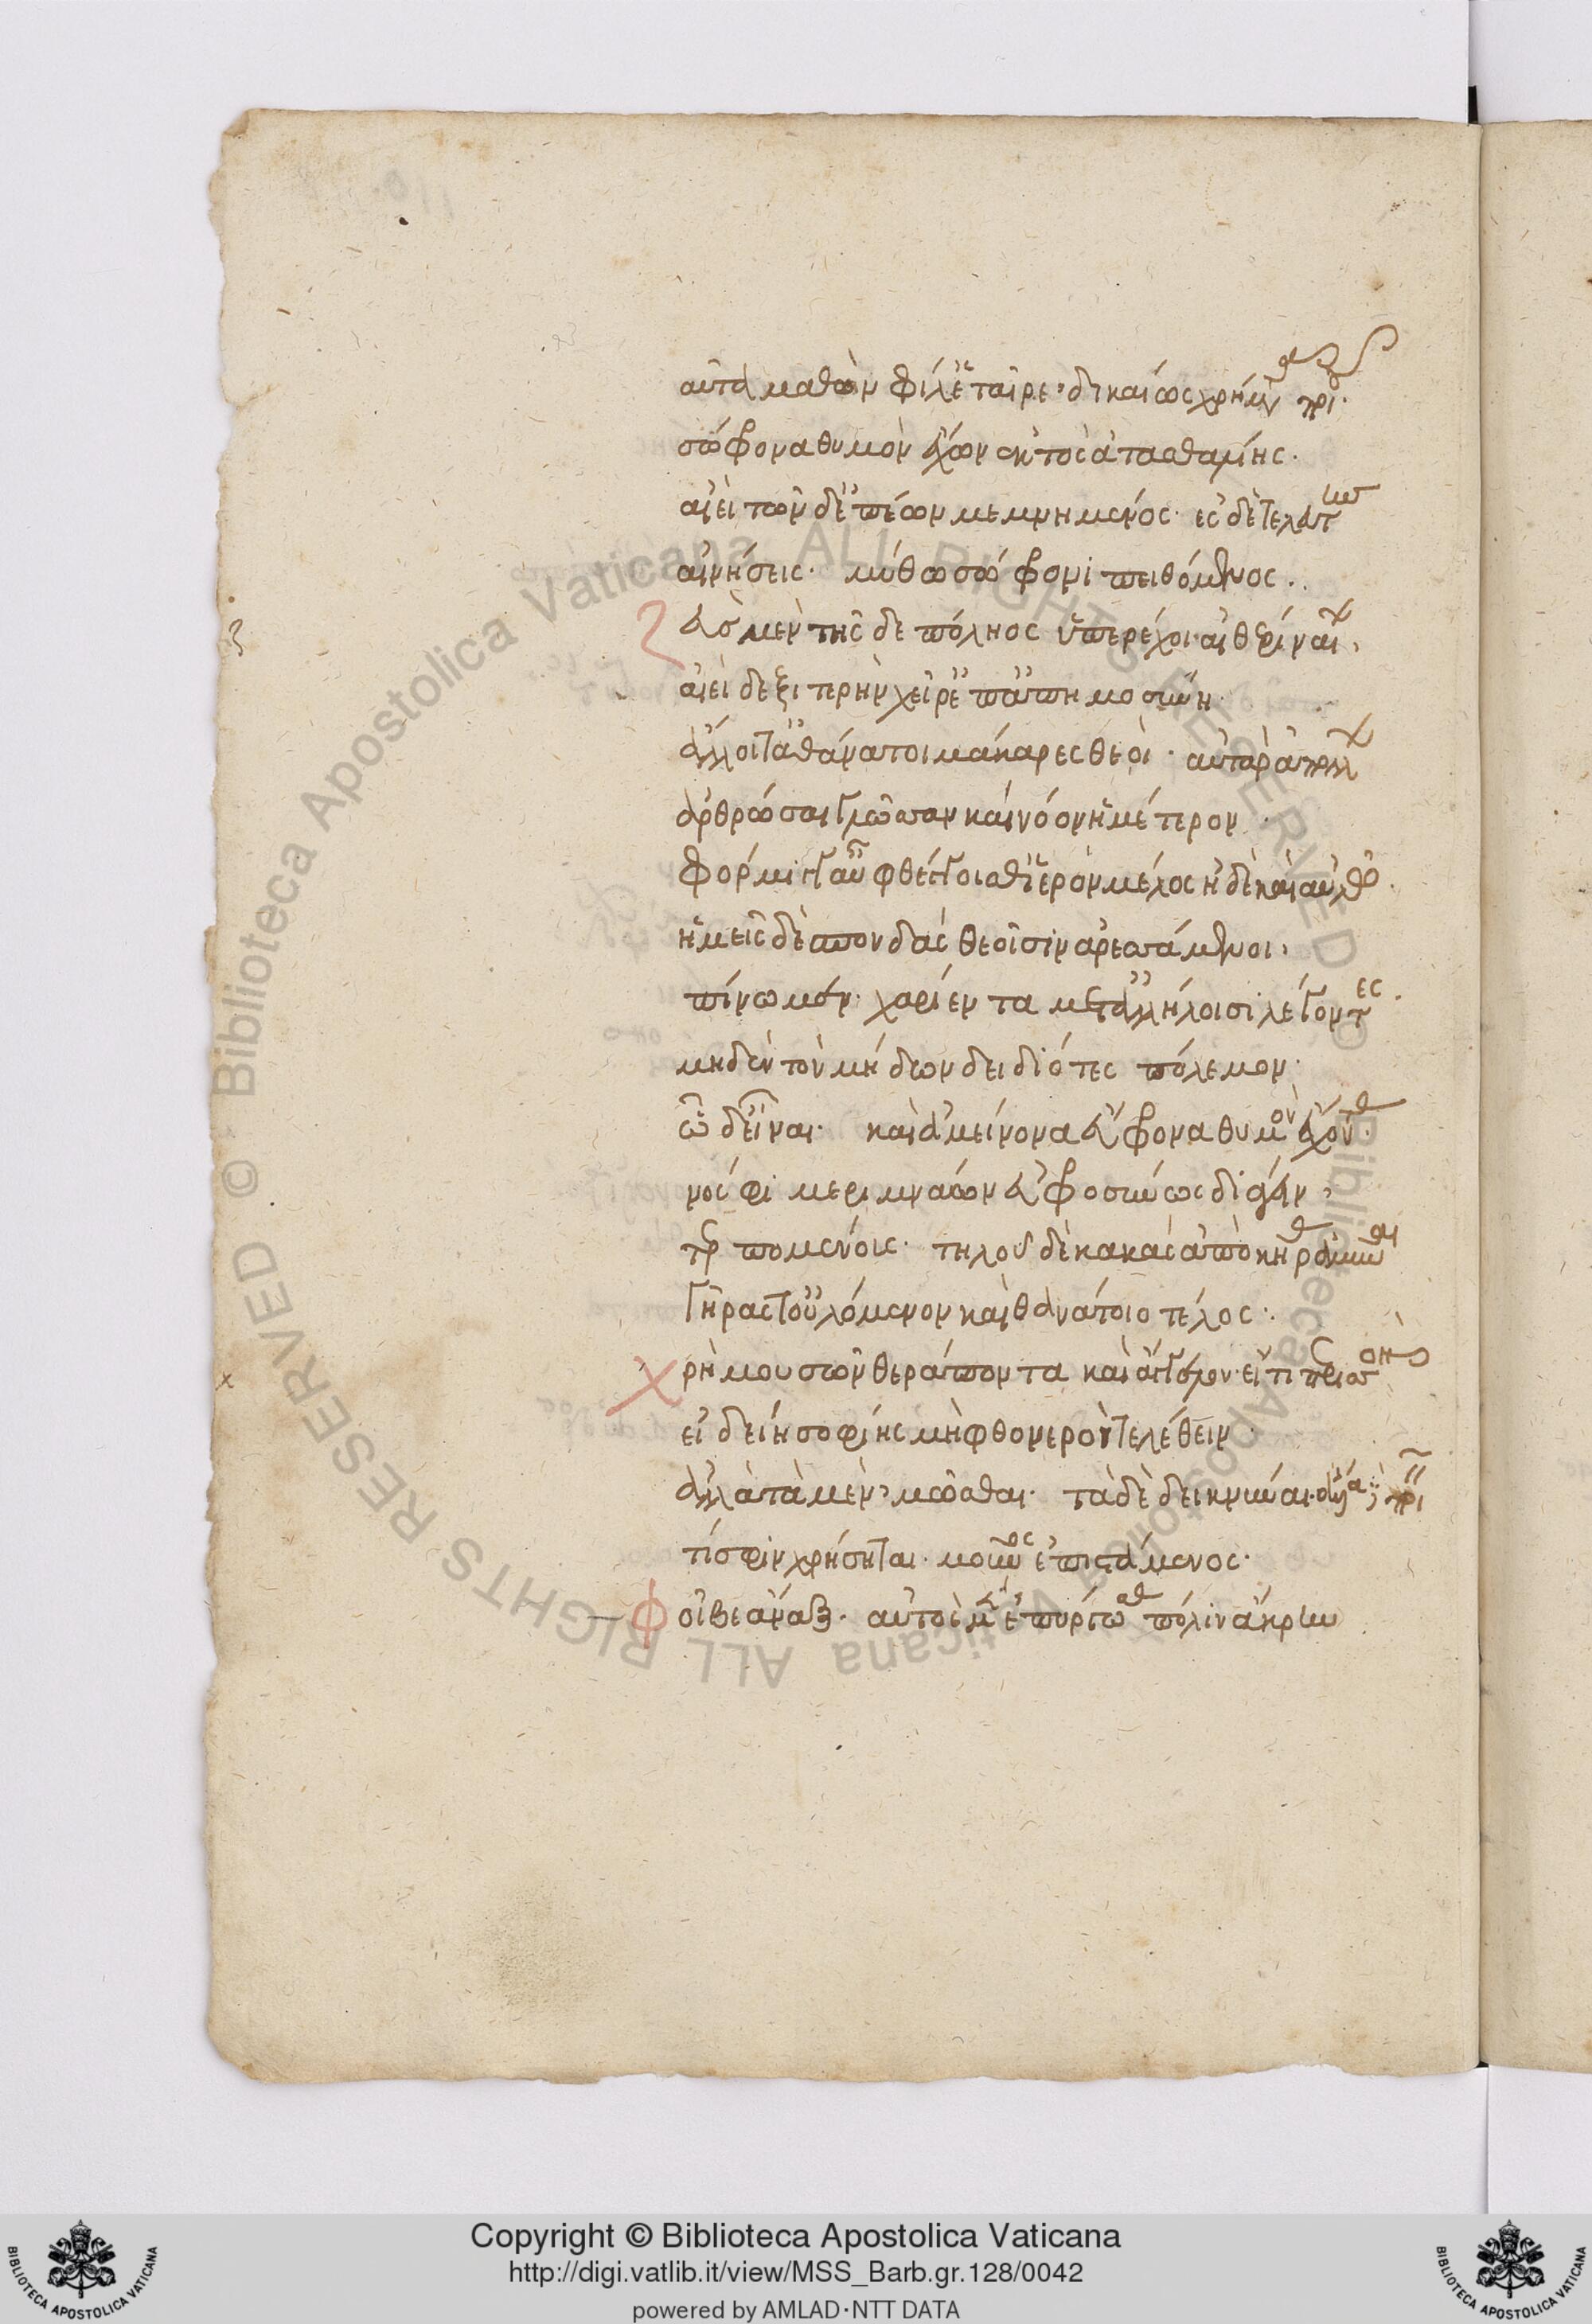 ταῦτα μαθὼν φίλ' ἑταῖρε δικαίως χρήματα ποιοῦ
σώφρονα θυμὸν ἔχων ἐκτὸς ἀτασθαλίης.
αἰεὶ τῶνδ' ἐπέων μεμνημένος· ἐς δὲ τελευτὴν
αἰνήσεις· μύθω σώφρονι πειθόμενος.
Ζεὺς μὲν τῆς δε πόληος ὑπερέχοι αἰθέρι ναίων,
αἰεὶ δεξιτερὴν χεῖρ' ἐπ' ἀπημοσύνη
ἄλλοι τ' ἀθάνατοι μάκαρες θεοὶ· αὐτὰρ ἀπόλλων
ὀρθώσαι γλῶσσαν καὶ νόον ἡμέτερον
φόρμιγγ' αὖ φθέγγοισθ' ἱερὸν μέλος ἠδὲ καὶ αὐλὸς.
ἡμεῖς δὲ σπονδὰς θεοῖσιν ἀρεσσάμενοι,
πίνωμεν· χαρίεντα μετ' ἀλλήλοισι λέγοντες.
μηδὲν τὸν μήδων δειδιότες πόλεμον·
ὧδ' εἶναι· καὶ ἀμείνονα εὔφρονα θυμὸν ἔχοντας.
νόσφι μεριμνάων εὐφροσύνως διάγειν,
τερπομένοις· τηλοῦ δὲ κακὰς ἀπὸ κῆρας ἀμῦναι
γῆράς τ' οὐλόμενον καὶ θανάτοιο τέλος·
Χρὴ μουσῶν θεράποντα καὶ ἄγγελον· εἴ τι περισσὸν
εἰδείη σοφίης μὴ φθονερὸν τελέθειν·
ἀλλὰ τὰ μὲν, μῶσθαι· τὰ δὲ δεικνύναι· ἄλλα δὲ ποιεῖν
τί σφιν χρήσηται· μοῦνος ἐπιστάμενος·
Φοῖβε ἄναξ· αὐτὸς μὲν ἐπύργωσας πόλιν ἄκρην
Copyright © Biblioteca Apostolica Vaticana
http://digi.vatlib.it/view/MSS_Barb.gr.128/0042
powered by AMLAD·NTT DATA